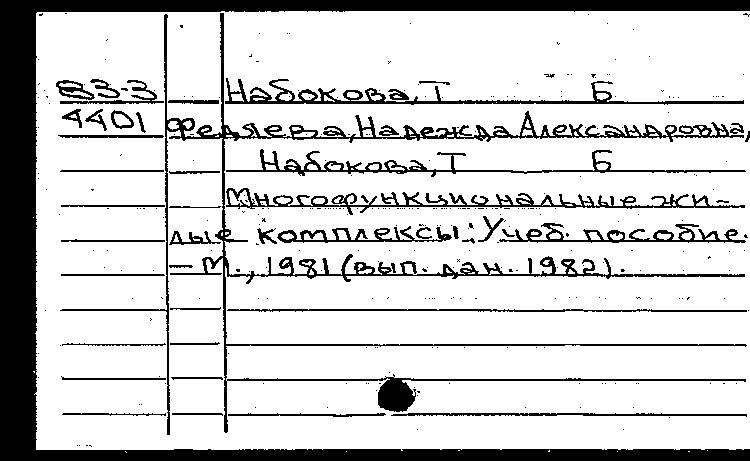 83-3 Набокова, Т Б
4401 Федяева, Надежда Александровна,
Набокова, Т Б
Многофункциональные жи-
лые комплексы: Учеб. пособие.
— М., 1981 (вып. дан. 1982).